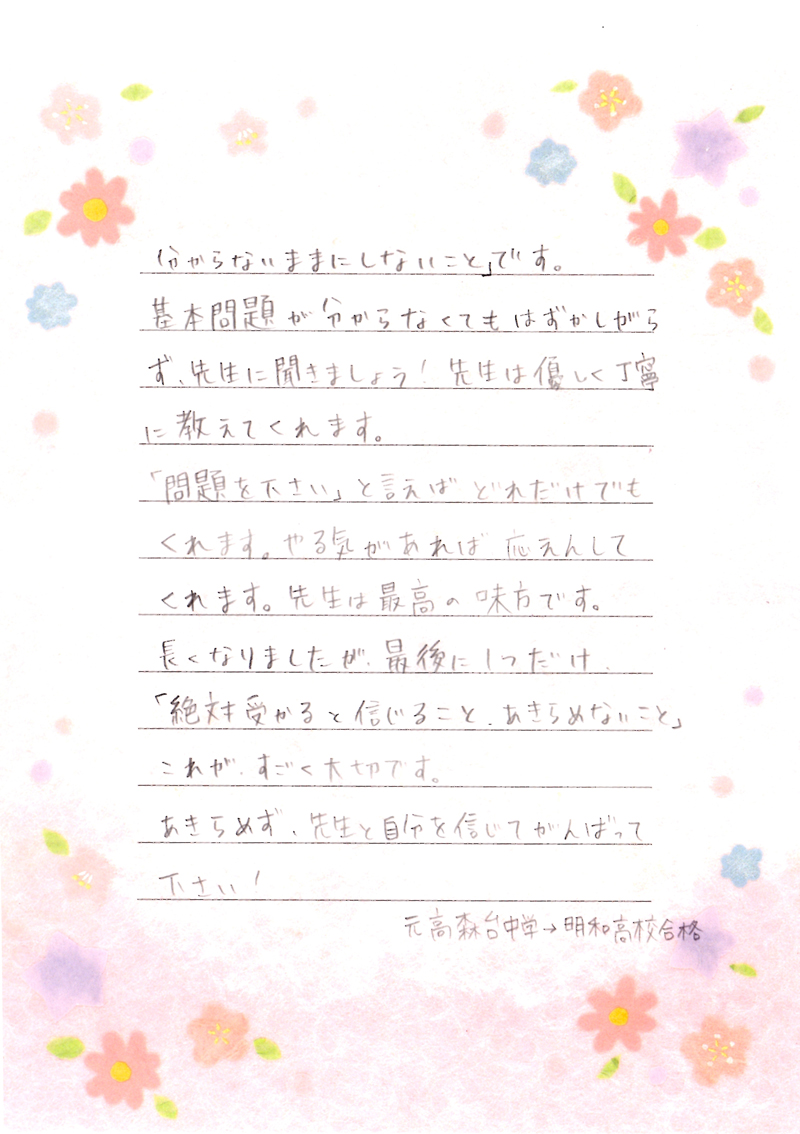 分からないままにしないこと」です。
基本問題が分からなくてもはずかしがら
ず、先生に聞きましょう！先生は優しく丁寧
に教えてくれます。
「問題を下さい」と言えばどれだけでも
くれます。やる気があれば応えんして
くれます。先生は最高の味方です。
長くなりましたが、最後に1つだけ、
「絶対受かると信じること、あきらめないこと」
これが、すごく大切です。
あきらめず、先生と自分を信じてがんばって
下さい！
元高森台中学→明和高校合格